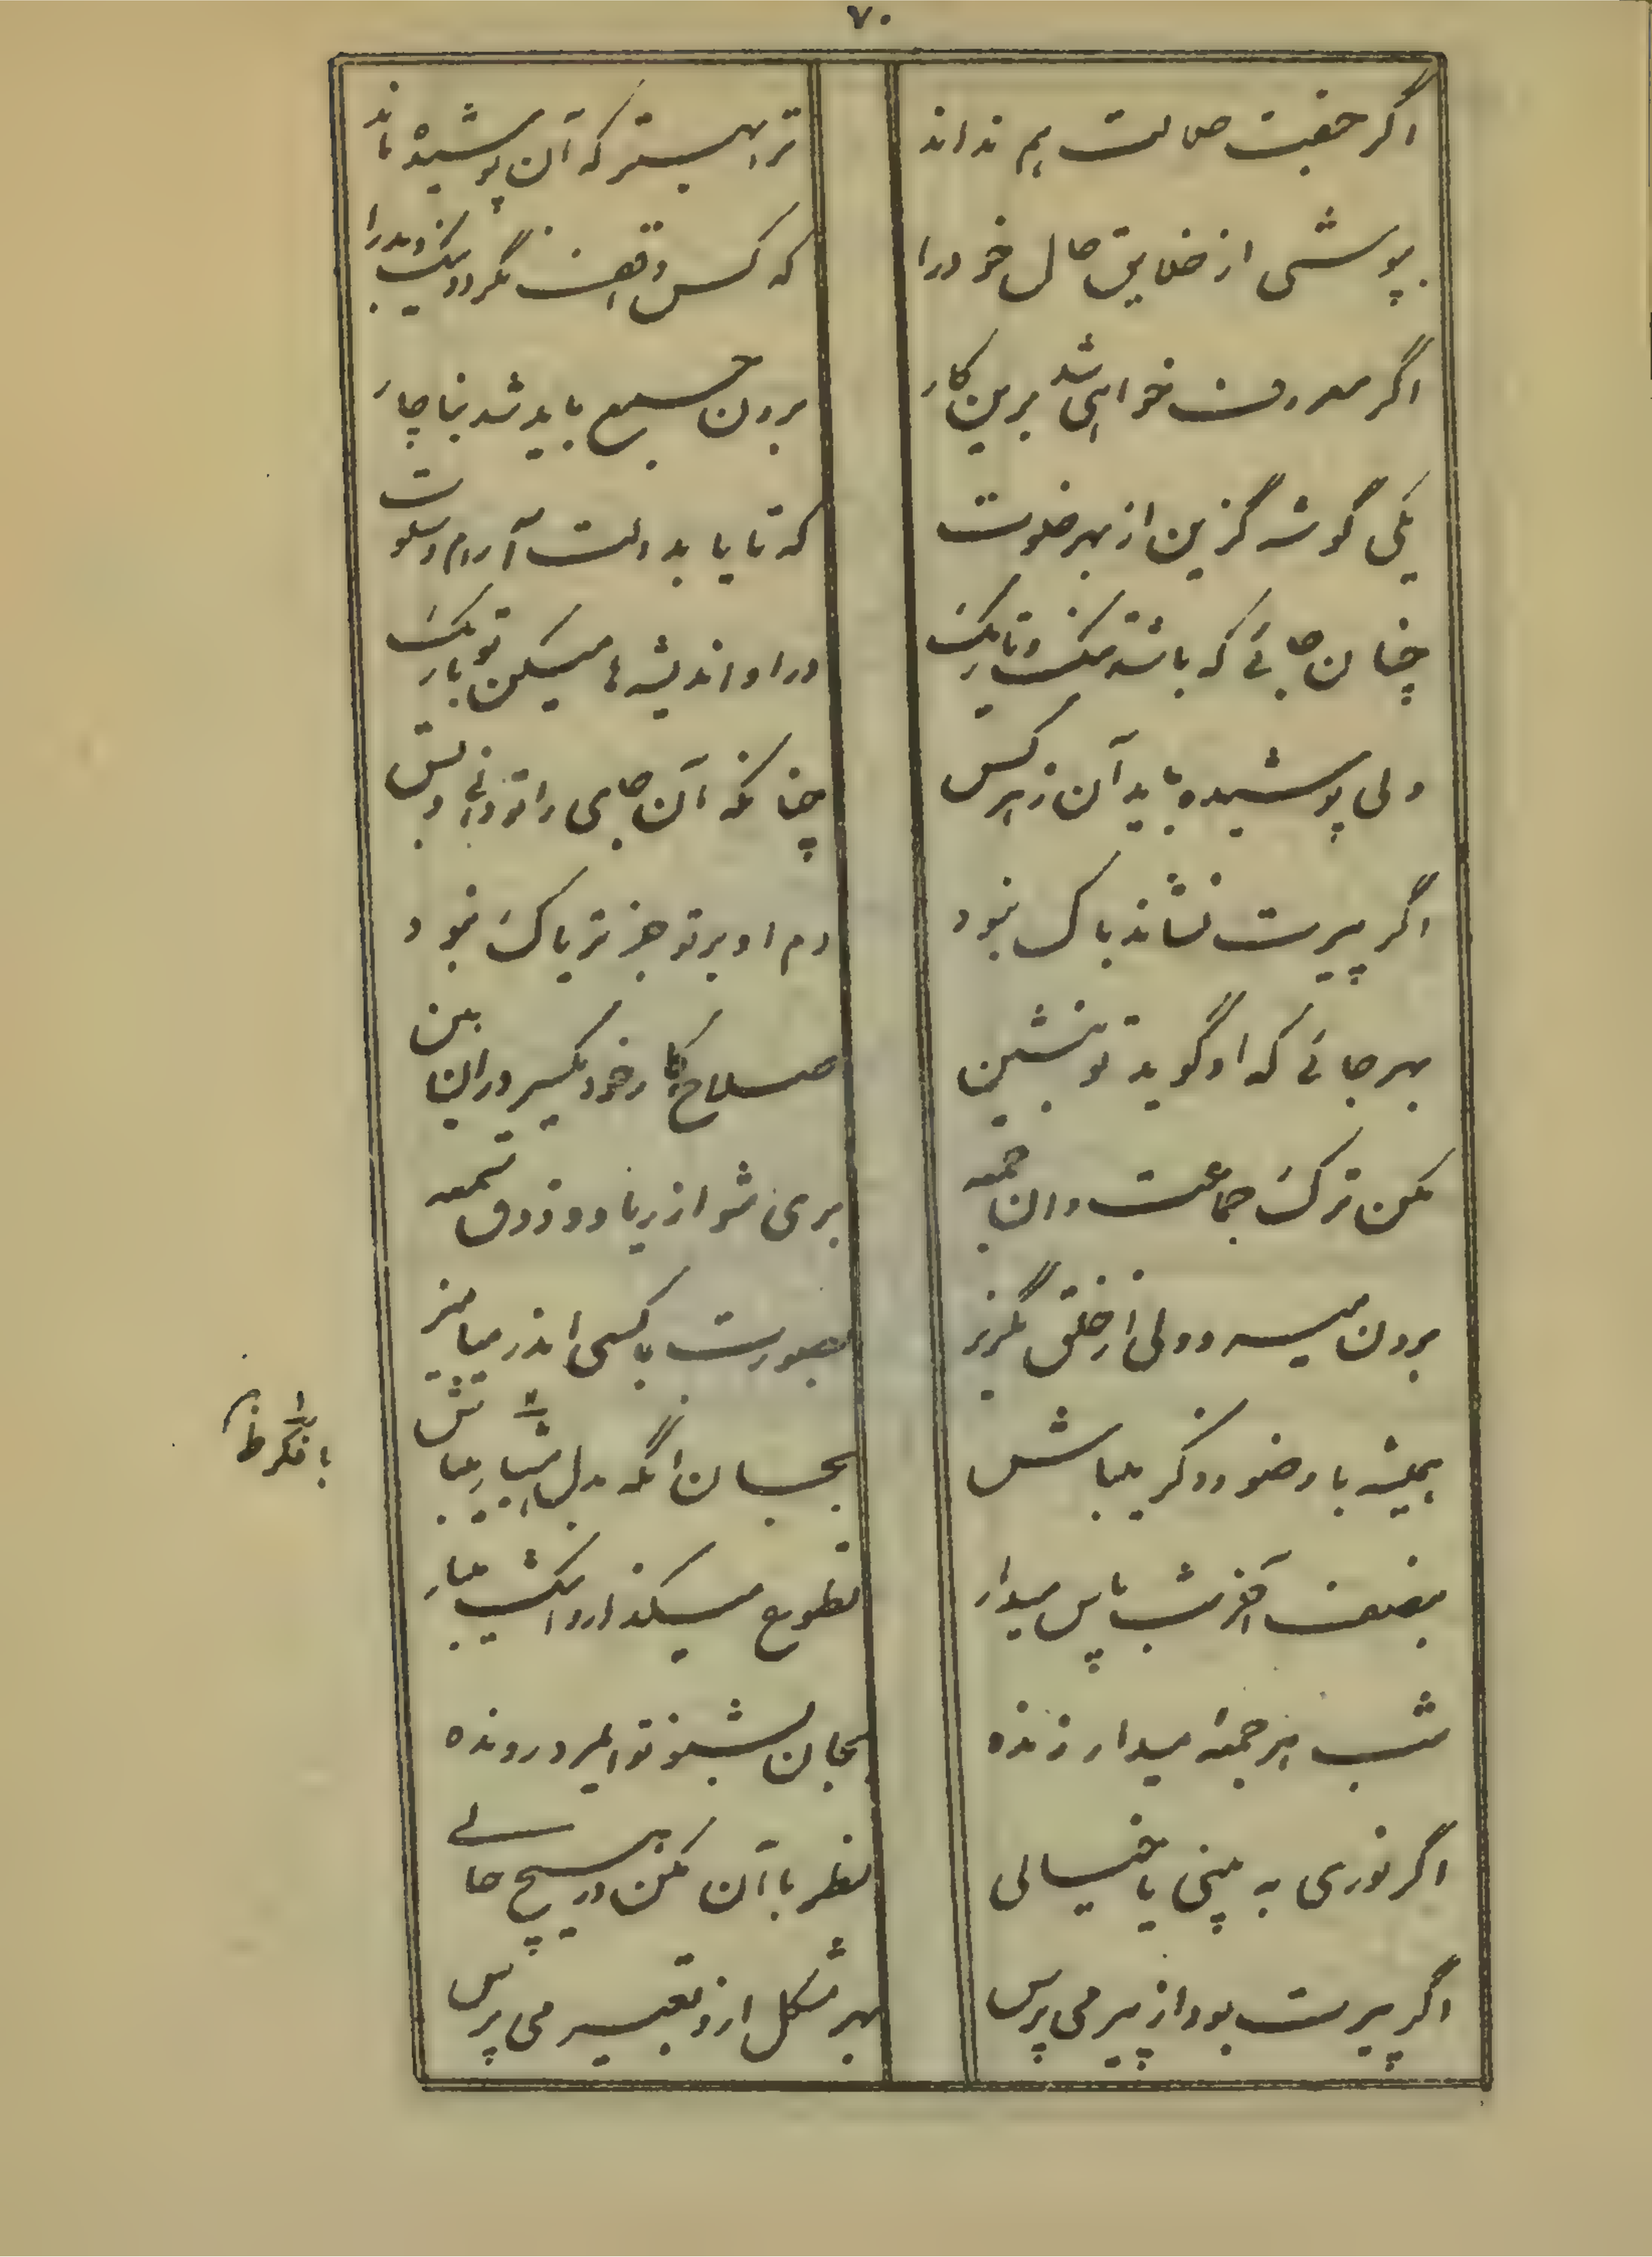 ۷۰
اگر جفتت صلاحت هم نداند
ترا بهتر که آن پوشیده ماند
بپوشی از خلایق حال خود را
که کس واقف نگردد نیک و بد را
اگر معروف خواهی شد برین کار
برون جمیع باید شد بناچار
یکی گوشه گزین از بهر خلوت
که تا یابد دلت آرام و سلوت
چنان جائی که باشد تنگ و تاریک
در او اندیشه‌ها میکن تو باریک
ولی پوشیده باید آن ز هر کس
چنانکه آن جای را تو دانی و بس
اگر پیرت نشاند باک نبود
دم او بر تو جز تریاک نبود
بهر جائی که او گوید تو بنشین
صلاح کار خود یکسر در آن بین
مکن ترک جماعت دان جمعه
بری شو از ریا و ذوق سمعه
برون میرو ولی از خلق بگریز
بصورت با کسی اندر میامیز
همیشه با وضو و ذکر میباش
بجسان آنگه بدل هشیار میباش
بنصف آخر شب پاس میدار
تطوع میگذار و اشک میبار
شب هر جمعه میدار زنده
بجان بشنو تو ایمرد رونده
اگر نوری به بینی یا خیالی
نظر با آن مکن در هیچ حالی
اگر پیرت بود از پیر می پرس
بهر مشکل ازو تعبیر می پرس
با فکر ظ